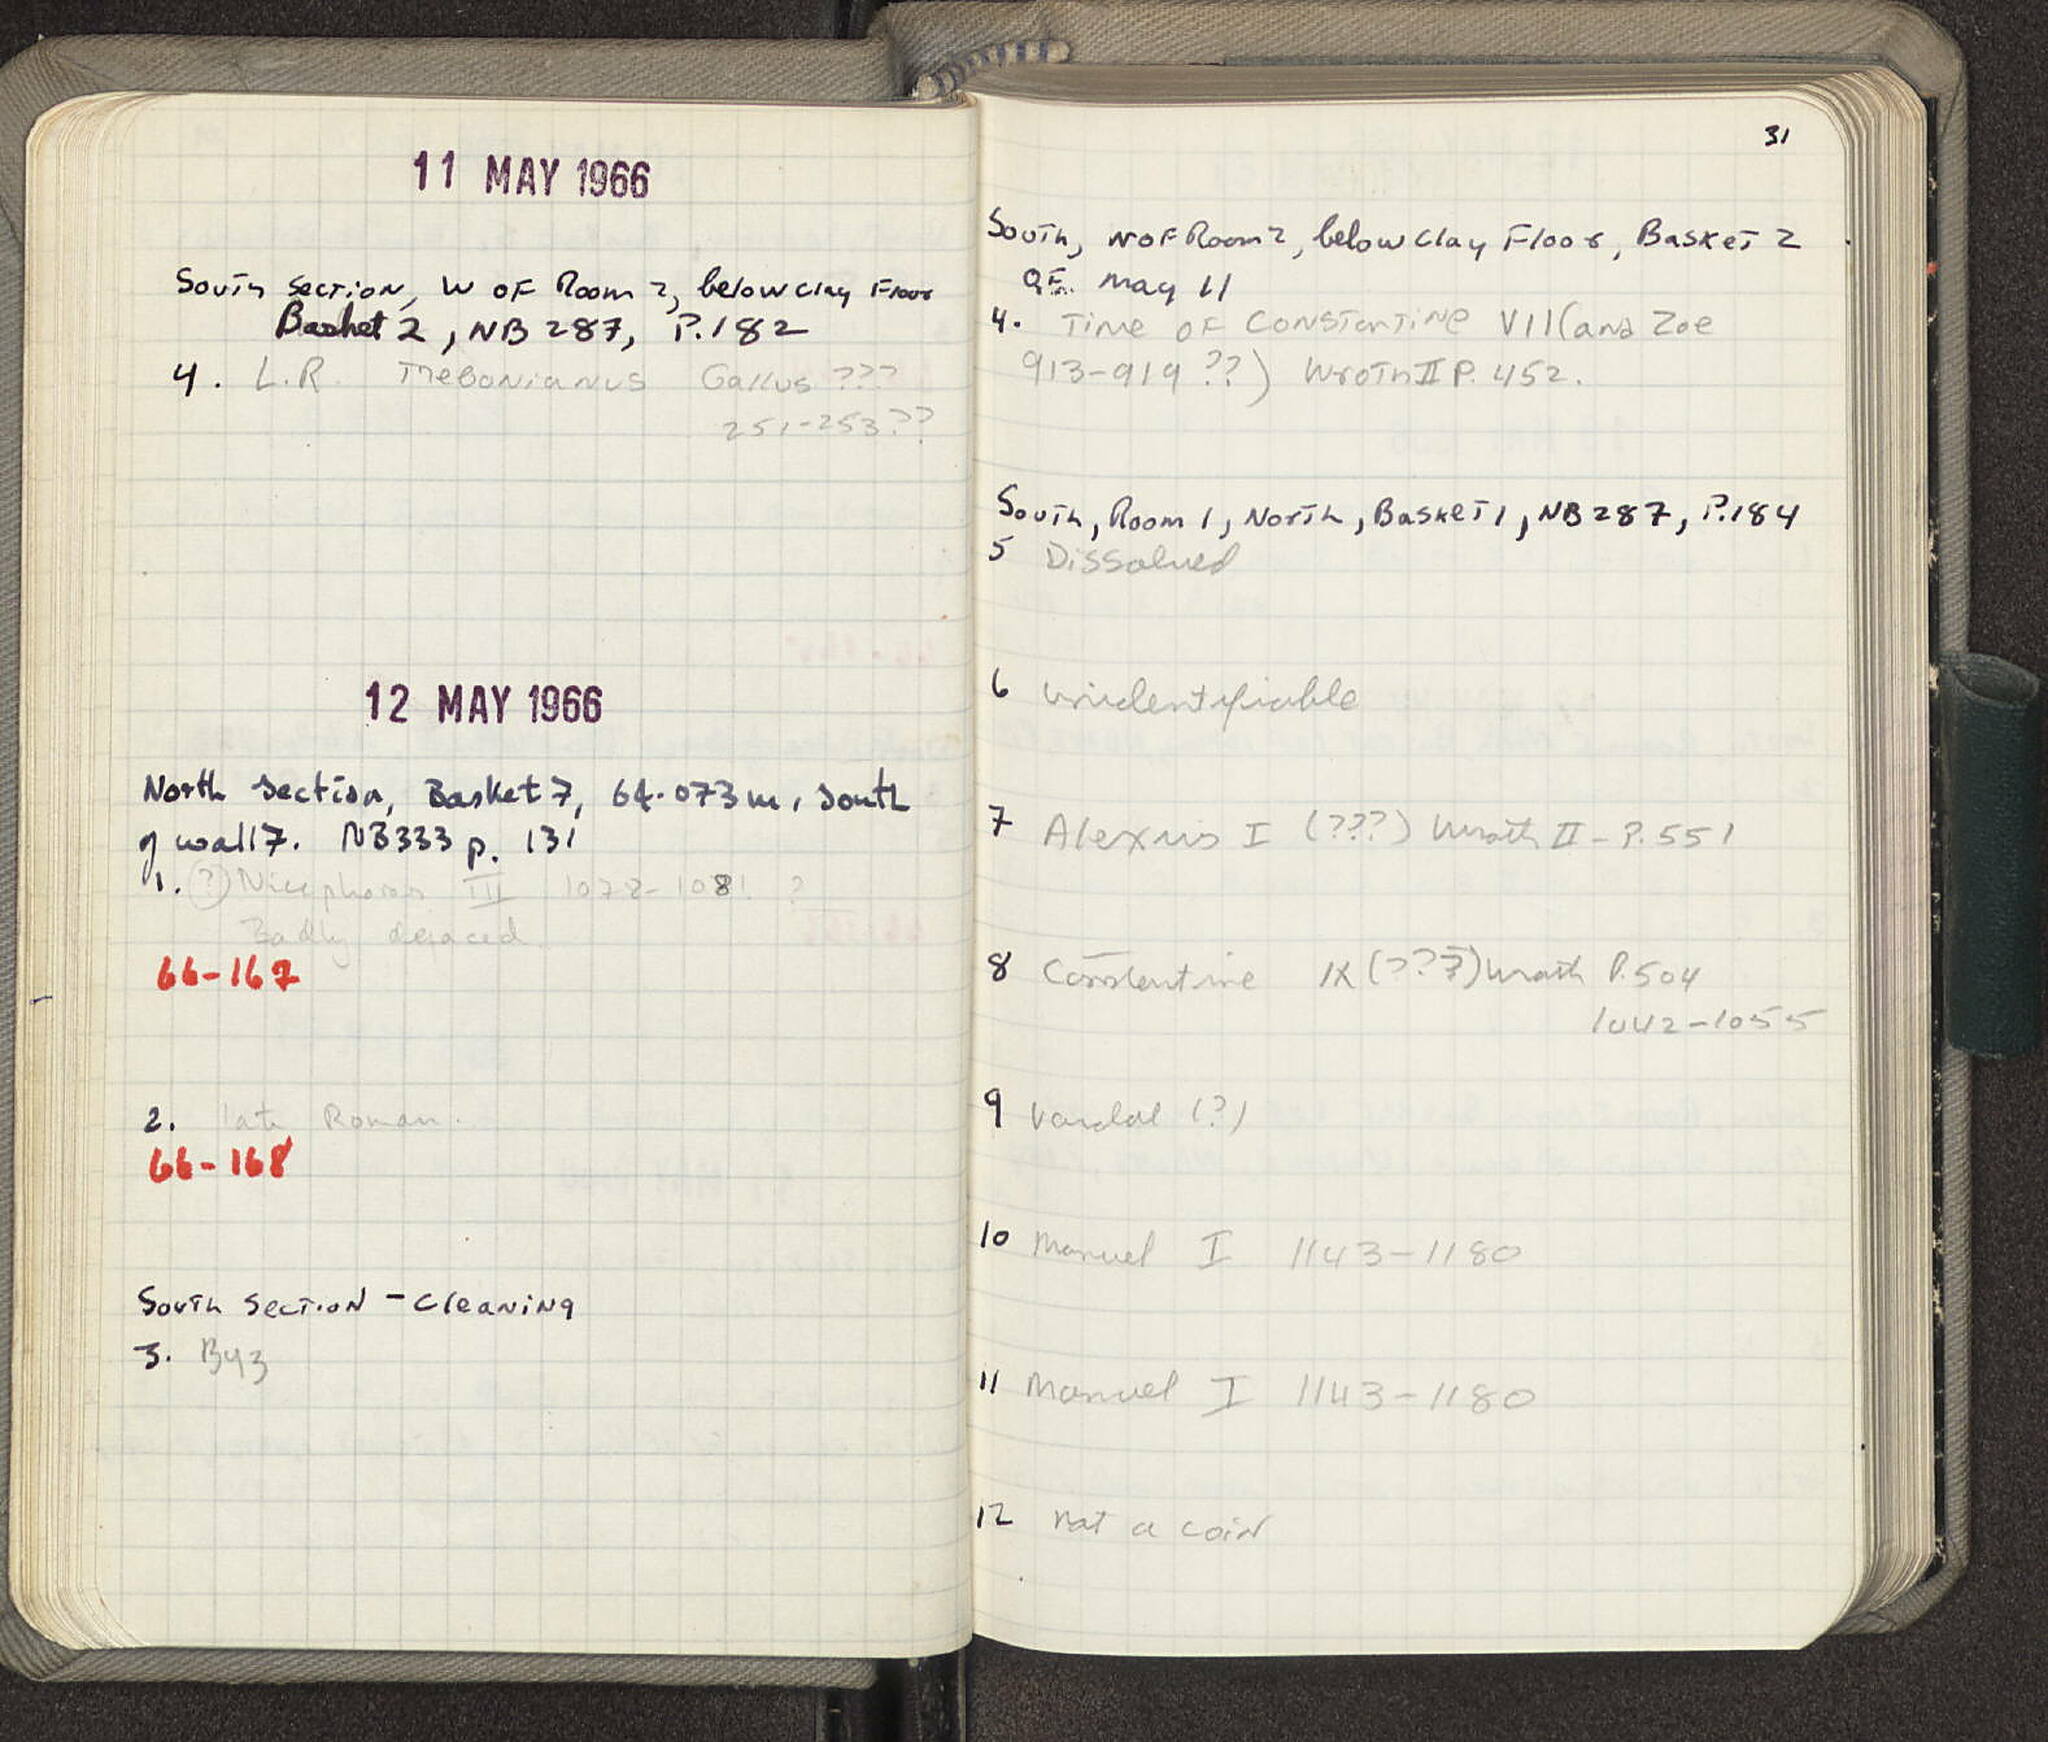 11 MAY 1966
South Section, W OF Room 2, below clay Floor
Basket 2, NB 287, P.182
4. L.R. Trebonianus Gallus ???
251-253??
12 MAY 1966
North Section, Basket 7, 64.073m, South
of wall 7. NB333 p. 131
1. (?) Nicephorus III 1078-1081 ?
Badly defaced
66-167
2. late Roman.
66-168
South Section - Cleaning
3. Byz
31
South, W OF Room 2, below clay Floor, Basket 2
OF May 11
4. Time OF Constantine VII (and Zoe
913-919 ??) Wroth II P. 452.
South, Room 1, North, Basket 1, NB 287, P.184
5 Dissolved
6 unidentifiable
7 Alexius I (???) Wroth II - P. 551
8 Constentine IX (???) Wroth P. 504
1042-1055
9 Vandal (?)
10 Manuel I 1143-1180
11 Manuel I 1143-1180
12 not a coin